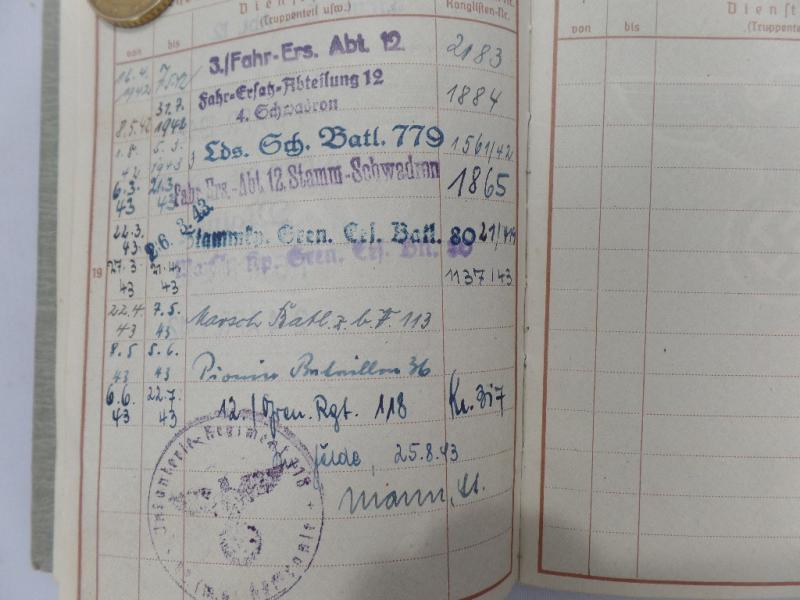 Dienst
(Truppenteil usw.)
Ranglisten-Nr.
von bis
16.4. 1942 3./Fahr-Ers. Abt. 12 2183
8.5.42 31.7. 1942 Fahr-Ersatz-Abteilung 12
4. Schwadron 1884
1.8. 42 5.3. 1943 Lds. Sch. Batl. 779 1561/42
6.3. 43 21.3. 43 Fahr-Ers.-Abt. 12, Stamm-Schwadron 1865
22.3. 43 26.3.43 Stammkp. Gren. Ers. Batl. 80
19 27.3 43 43 Kp. Gren. Ers. Btl. 80 1137/43
22.4. 43 7.5. 43 Marsch Batl. z.b.V. 113
8.5 43 5.6. 43 Pionier Bataillon 36
6.6. 43 22.7. 43 12./Gren. Rgt. 118 Kr. 317
Im Felde, 25.8.43
Mann,
Infanterie Regiment 118
Dienst
(Truppente
von bis